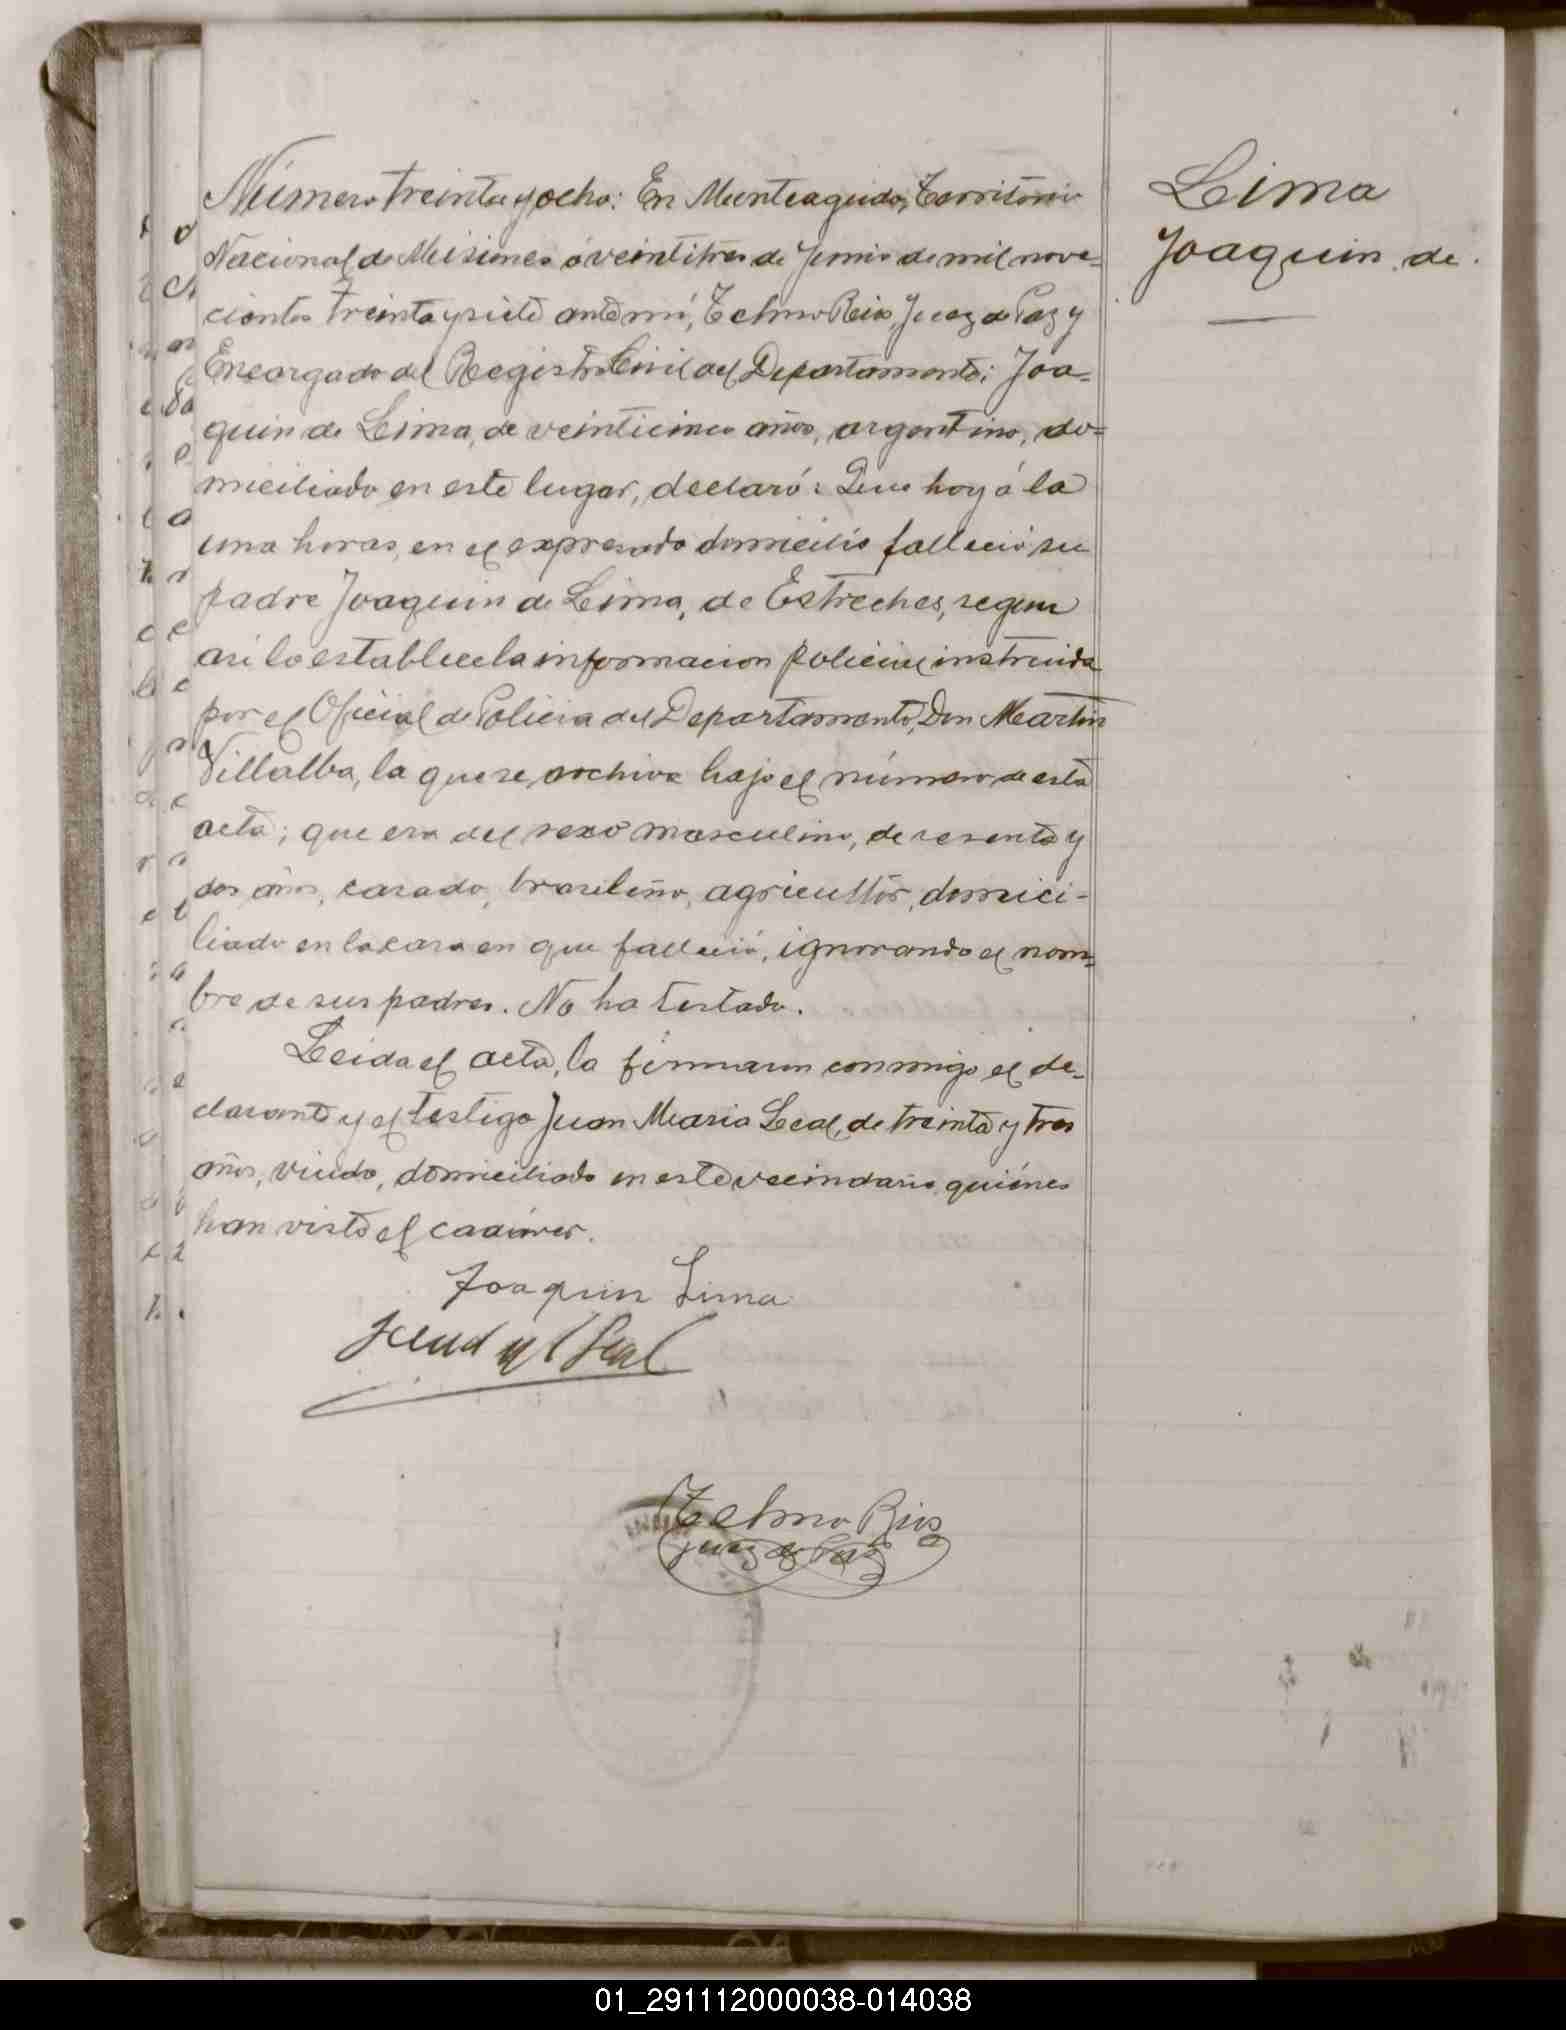 Número treinta y ocho: En Monteagudo, Territorio
Nacional de Misiones á veintitres de Junio de mil nove=
cientos treinta y siete ante mi, Telmo Rios, Juez de Paz y
Encargado del Registro Civil del Departamento; Joa-
quin de Lima, de veinticinco años, argentino, do=
miciliado en este lugar, declaró: Que hoy á la
una horas, en el expresado domicilio falleció su
padre Joaquin de Lima, de Estreches, segun
asi lo establece la informacion policial instruida
por el Oficial de Policia del Departamento, Don Martin
Villalba, la que se archiva bajo el número de esta
acta; que era del sexo masculino, de sesenta y
dos años, casado, brasileño, agricultor, domici-
liado en la casa en que falleció, ignorando el nom=
bre de sus padres. No ha testado.
Leida el acta, la firmaron conmigo el de-
clarante y el testigo Juan Maria Leal, de treinta y tres
años, viudo, domiciliado en este vecindario, quiénes
han visto el cadáver.
Joaquin Lima
Leal
Telmo Rios
Juez de Paz
Lima
Joaquin de.
01_291112000038-014038